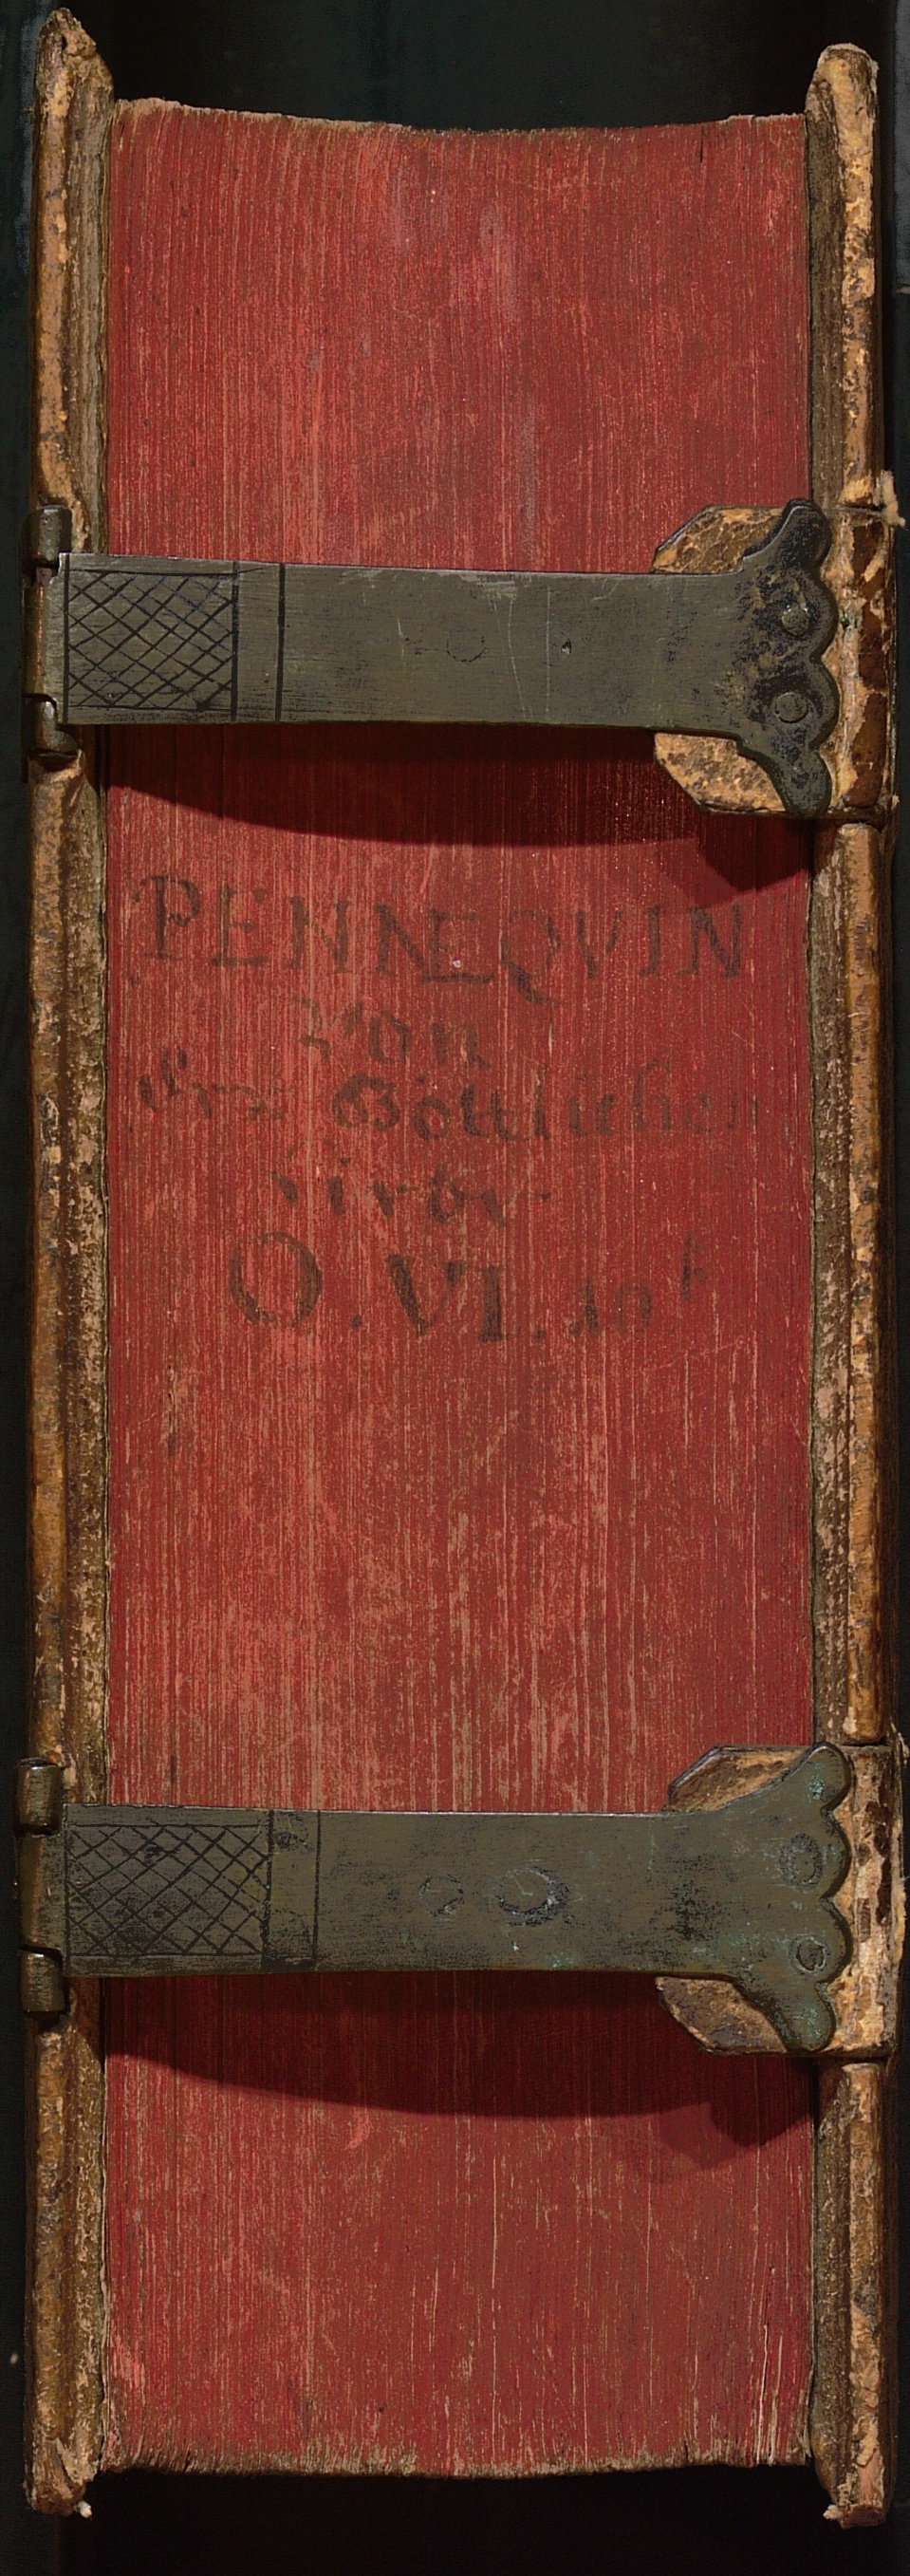 PENNEQVIN
von
der Göttlichen
O. VI. 10 b